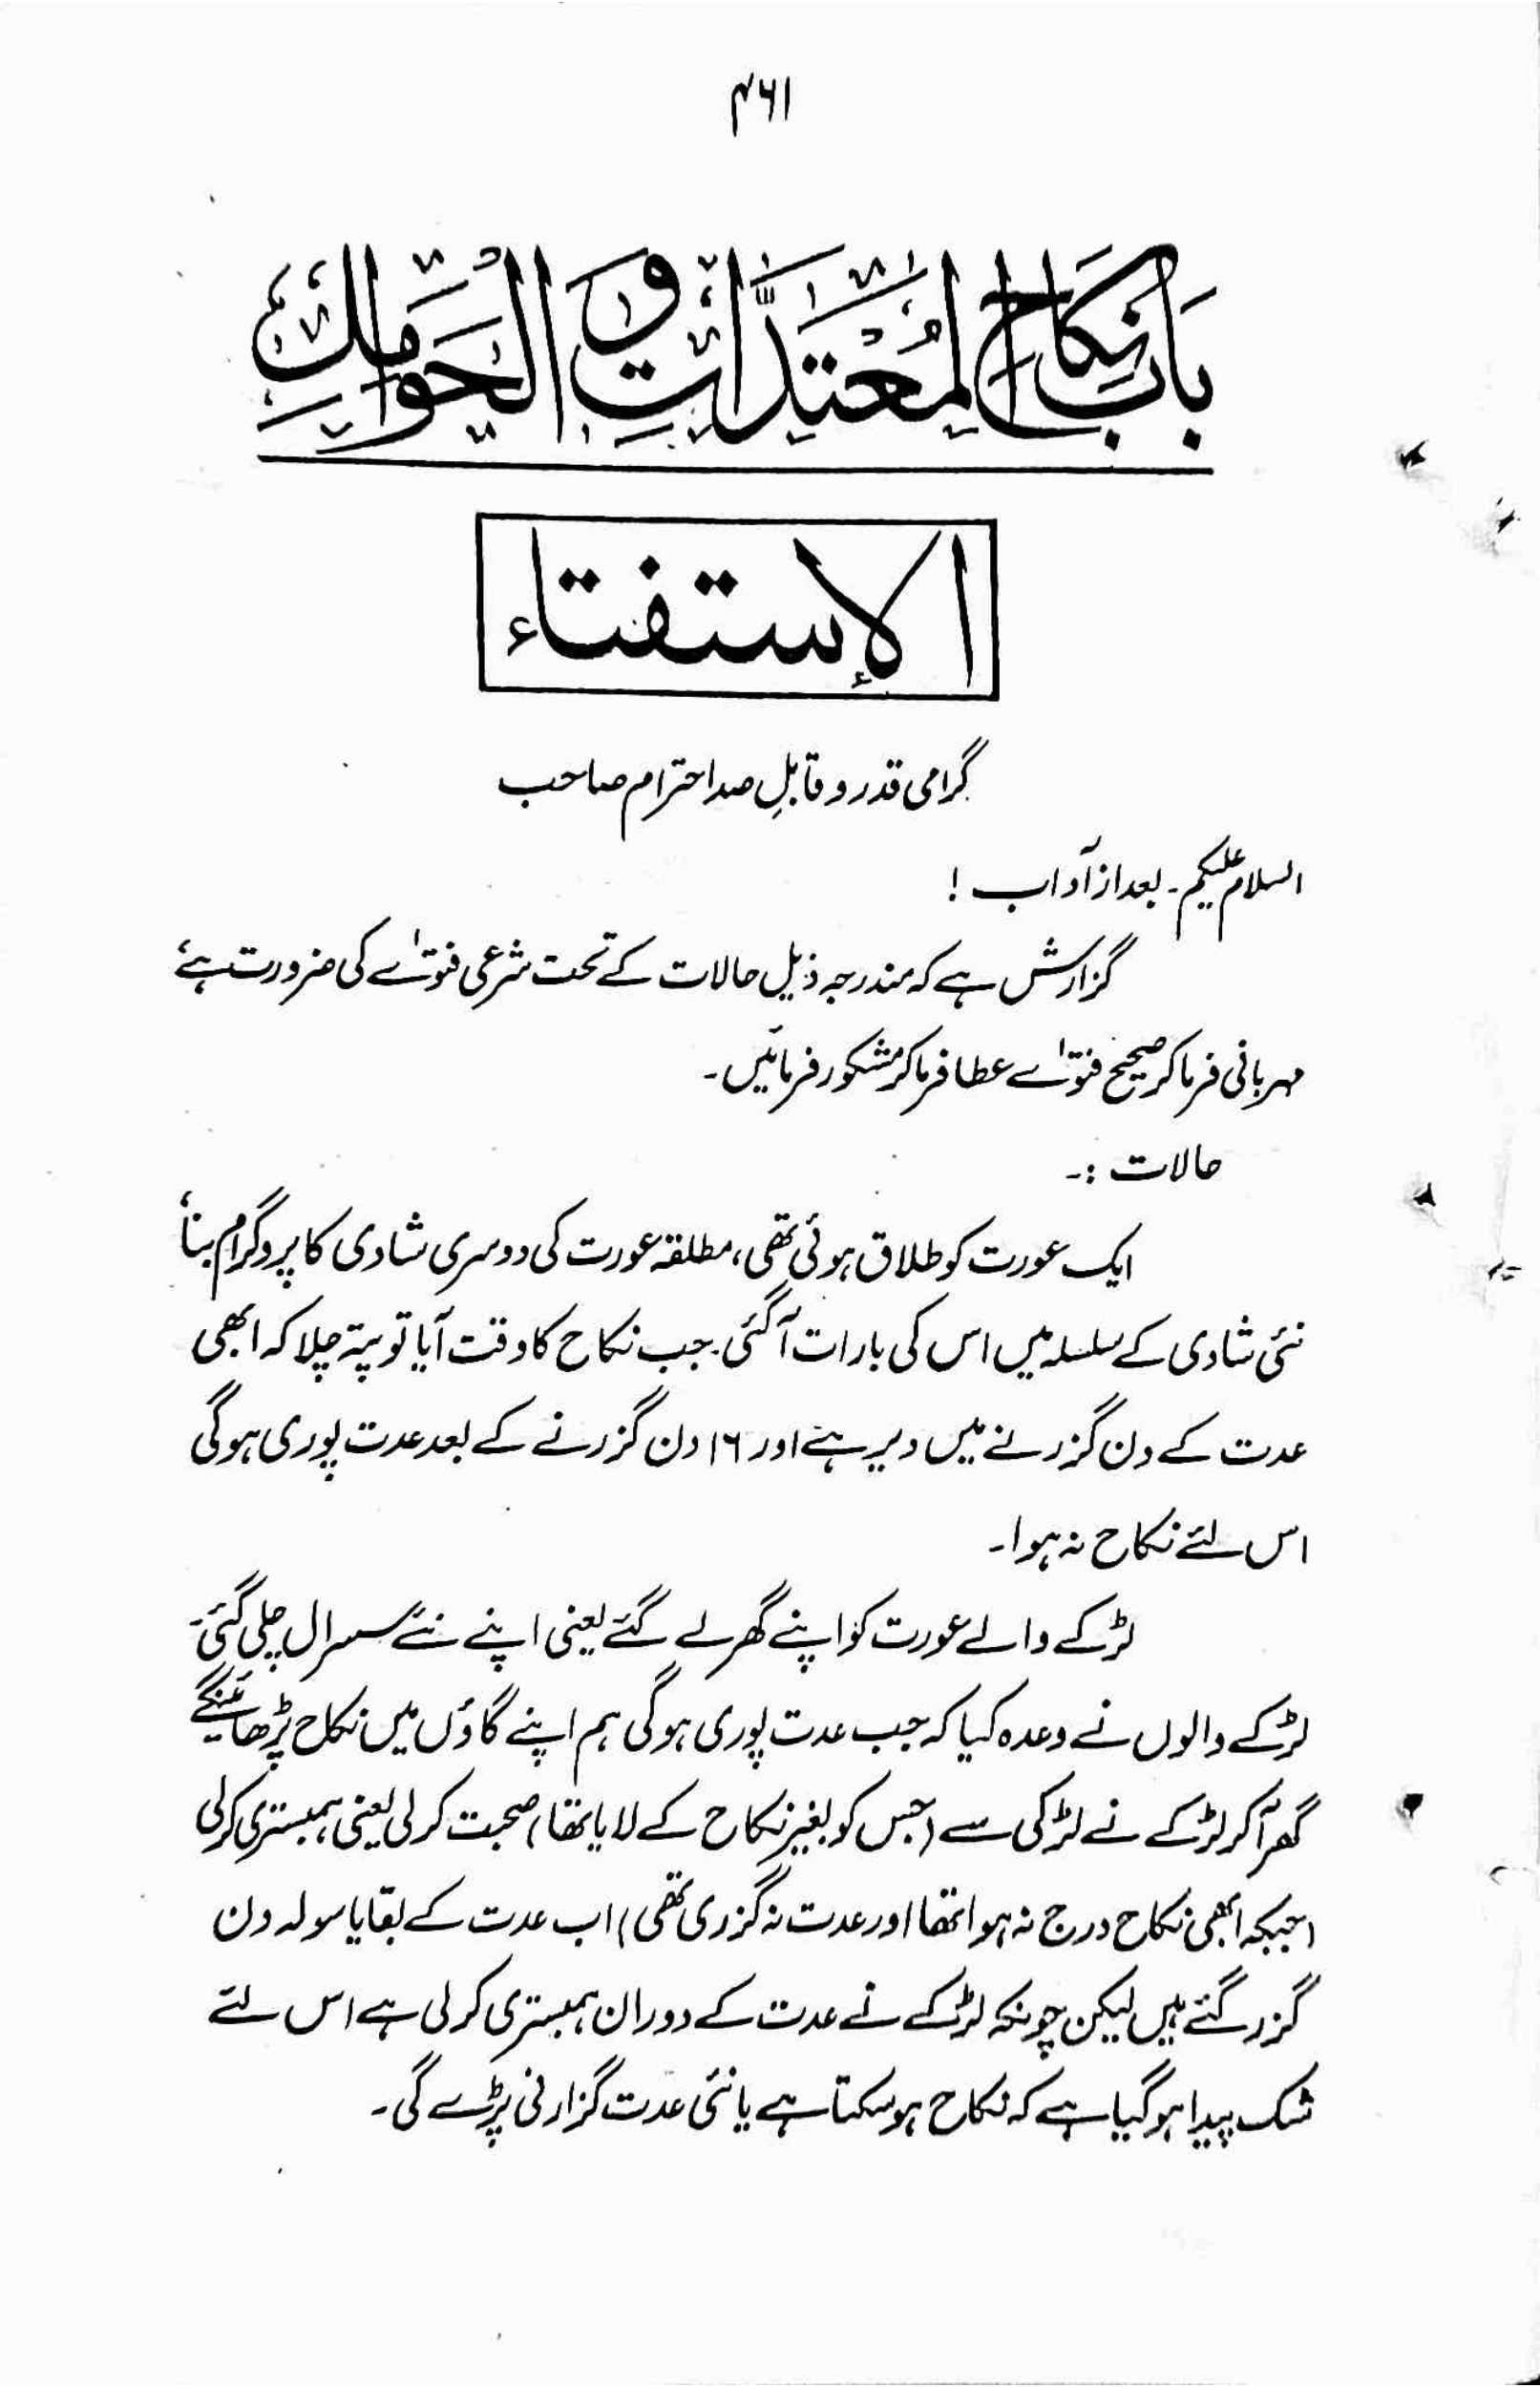 ۴۶۱
بَابُ نِكَاحِ الْمُعْتَدَّاتِ وَالْحَوَامِلِ
الإستفتاء
گرامی قدر و قابلِ صد احترام صاحب
السلام علیکم ۔ بعد از آداب !
گزارش ہے کہ مندرجہ ذیل حالات کے تحت شرعی فتوٰے کی ضرورت ہے،
مہربانی فرما کر صحیح فتوٰے عطا فرما کر مشکور فرمائیں ۔
حالات :۔
ایک عورت کو طلاق ہوئی تھی، مطلقہ عورت کی دوسری شادی کا پروگرام بنا،
نئی شادی کے سلسلہ میں اس کی بارات آگئی ۔ جب نکاح کا وقت آیا تو پتہ چلا کہ ابھی
عدت کے دن گزرنے میں دیر ہے اور ۱۶ دن گزرنے کے بعد عدت پوری ہوگی
اس لئے نکاح نہ ہوا ۔
لڑکے والے عورت کو اپنے گھر لے گئے یعنی اپنے نئے سسرال چلی گئی ۔
لڑکے والوں نے وعدہ کیا کہ جب عدت پوری ہوگی ہم اپنے گاؤں میں نکاح پڑھائینگے
گھر آکر لڑکے نے لڑکی سے (جس کو بغیر نکاح کے لایا تھا) صحبت کر لی یعنی ہمبستری کرلی
(جبکہ ابھی نکاح درج نہ ہوا تھا اور عدت نہ گزری تھی) اب عدت کے بقایا سولہ دن
گزر گئے ہیں لیکن چونکہ لڑکے نے عدت کے دوران ہمبستری کر لی ہے اس لئے
شک پیدا ہو گیا ہے کہ نکاح ہو سکتا ہے یا نئی عدت گزارنی پڑے گی ۔